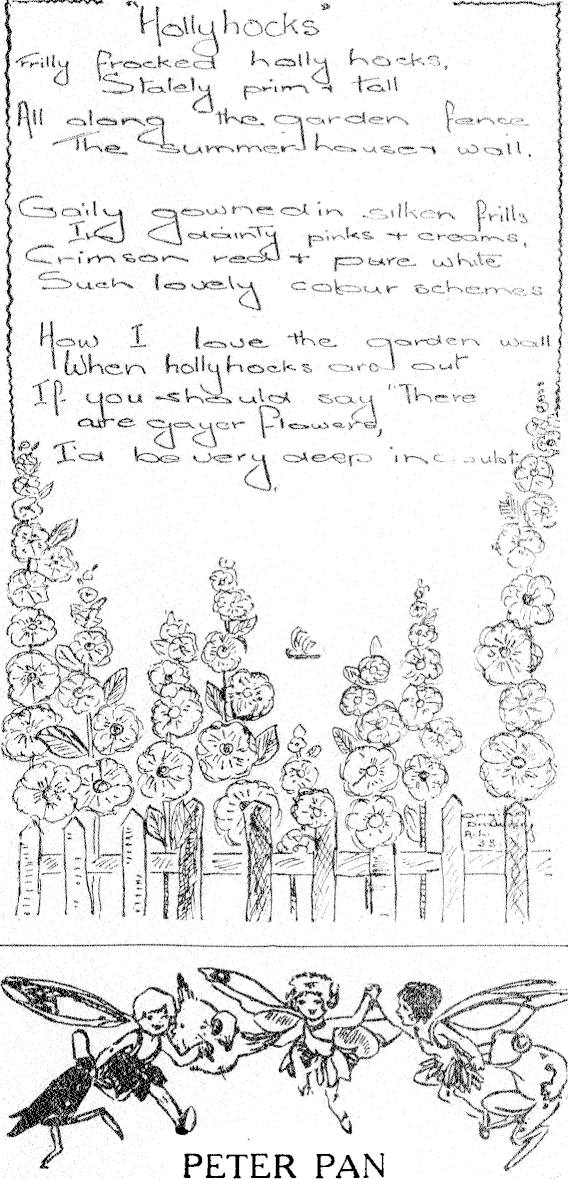 "Hollyhocks"
Frilly frocked holly hocks,
Stately prim + tall
All along the garden fence
The summer house + wall.
Gaily gowned in silken frills
In dainty pinks + creams,
Crimson red + pure white
Such lovely colour schemes
How I love the garden wall
When hollyhocks are out
If you should say "There
are gayer flowers,
I'd be very deep in doubt.
Original
Drawing
A.L.
33.
PETER PAN